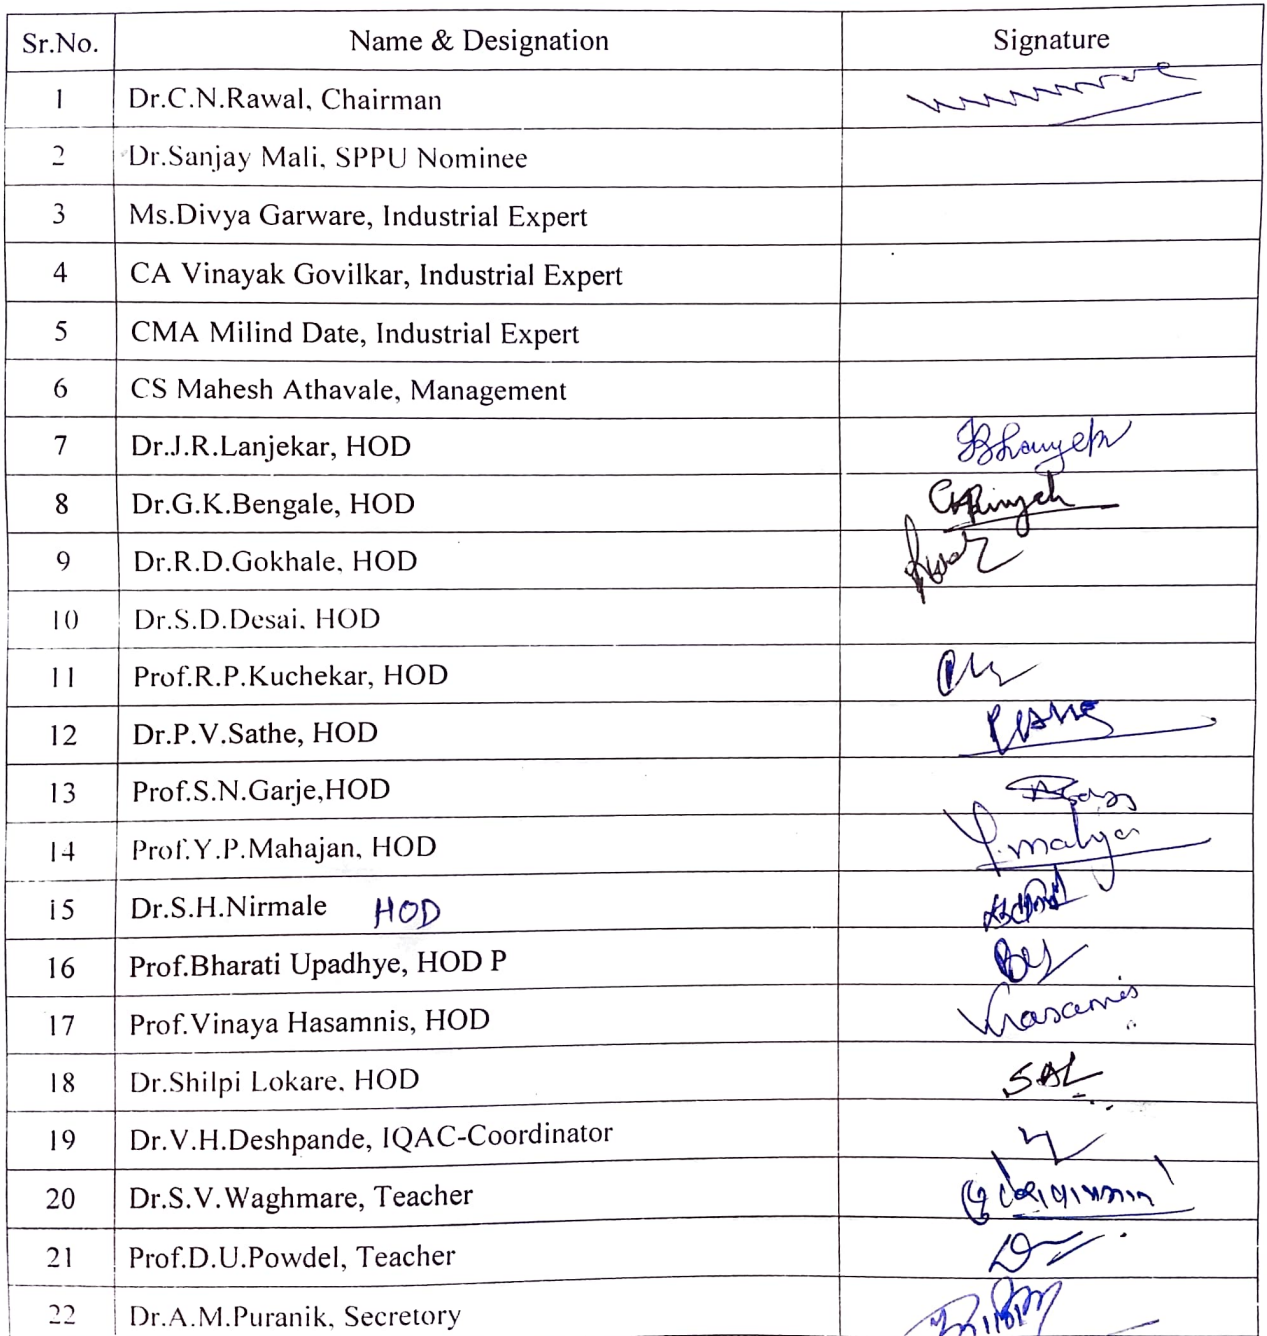 Sr.No. Name & Designation Signature
1 Dr.C.N.Rawal, Chairman
2 Dr.Sanjay Mali, SPPU Nominee
3 Ms.Divya Garware, Industrial Expert
4 CA Vinayak Govilkar, Industrial Expert
5 CMA Milind Date, Industrial Expert
6 CS Mahesh Athavale, Management
7 Dr.J.R.Lanjekar, HOD
8 Dr.G.K.Bengale, HOD
9 Dr.R.D.Gokhale, HOD
10 Dr.S.D.Desai, HOD
11 Prof.R.P.Kuchekar, HOD
12 Dr.P.V.Sathe, HOD
13 Prof.S.N.Garje,HOD
14 Prof.Y.P.Mahajan, HOD
15 Dr.S.H.Nirmale HOD
16 Prof.Bharati Upadhye, HOD P
17 Prof.Vinaya Hasamnis, HOD
18 Dr.Shilpi Lokare, HOD SAL
19 Dr.V.H.Deshpande, IQAC-Coordinator
20 Dr.S.V.Waghmare, Teacher
21 Prof.D.U.Powdel, Teacher
22 Dr.A.M.Puranik, Secretory